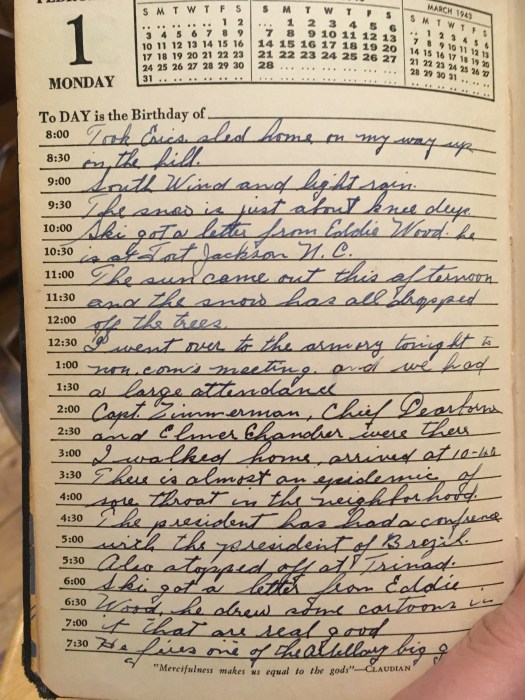 MARCH 1943
S M T W T F S S M T W T F S S M T W T F S
.. .. .. .. .. 1 2 .. 1 2 3 4 5 6 .. 1 2 3 4 5 6
3 4 5 6 7 8 9 7 8 9 10 11 12 13 7 8 9 10 11 12 13
10 11 12 13 14 15 16 14 15 16 17 18 19 20 14 15 16 17 18 19 20
17 18 19 20 21 22 23 21 22 23 24 25 26 27 21 22 23 24 25 26 27
24 25 26 27 28 29 30 28 .. .. .. .. .. .. 28 29 30 31 .. .. ..
31 .. .. .. .. .. ..
1
MONDAY
To DAY is the Birthday of
8:00 Took Erics sled home on my way up
8:30 on the hill.
9:00 South Wind and light rain.
9:30 The snow is just about knee deep.
10:00 Ski got a letter from Eddie Wood. he
10:30 is at Fort Jackson N.C.
11:00 The sun came out this afternoon
11:30 and the snow has all dropped
12:00 off the trees.
12:30 I went over to the armory tonight to
1:00 non.com's meeting. and we had
1:30 a large attendance
2:00 Capt. Zimmerman, Chief Dearborn
2:30 and Elmer Chandler were there
3:00 I walked home, arrived at 10-
3:30 There is almost an epidemic of
4:00 sore throat in the neighborhood.
4:30 The president has had a confrence
5:00 with the president of Brezil.
5:30 Also stopped off at Trinad.
6:00 Ski got a letter from Eddie
6:30 Wood, he drew some cartoons in
7:00 it that are real good
7:30 He fires one of the Artillary big
"Mercifulness makes us equal to the gods"—CLAUDIAN